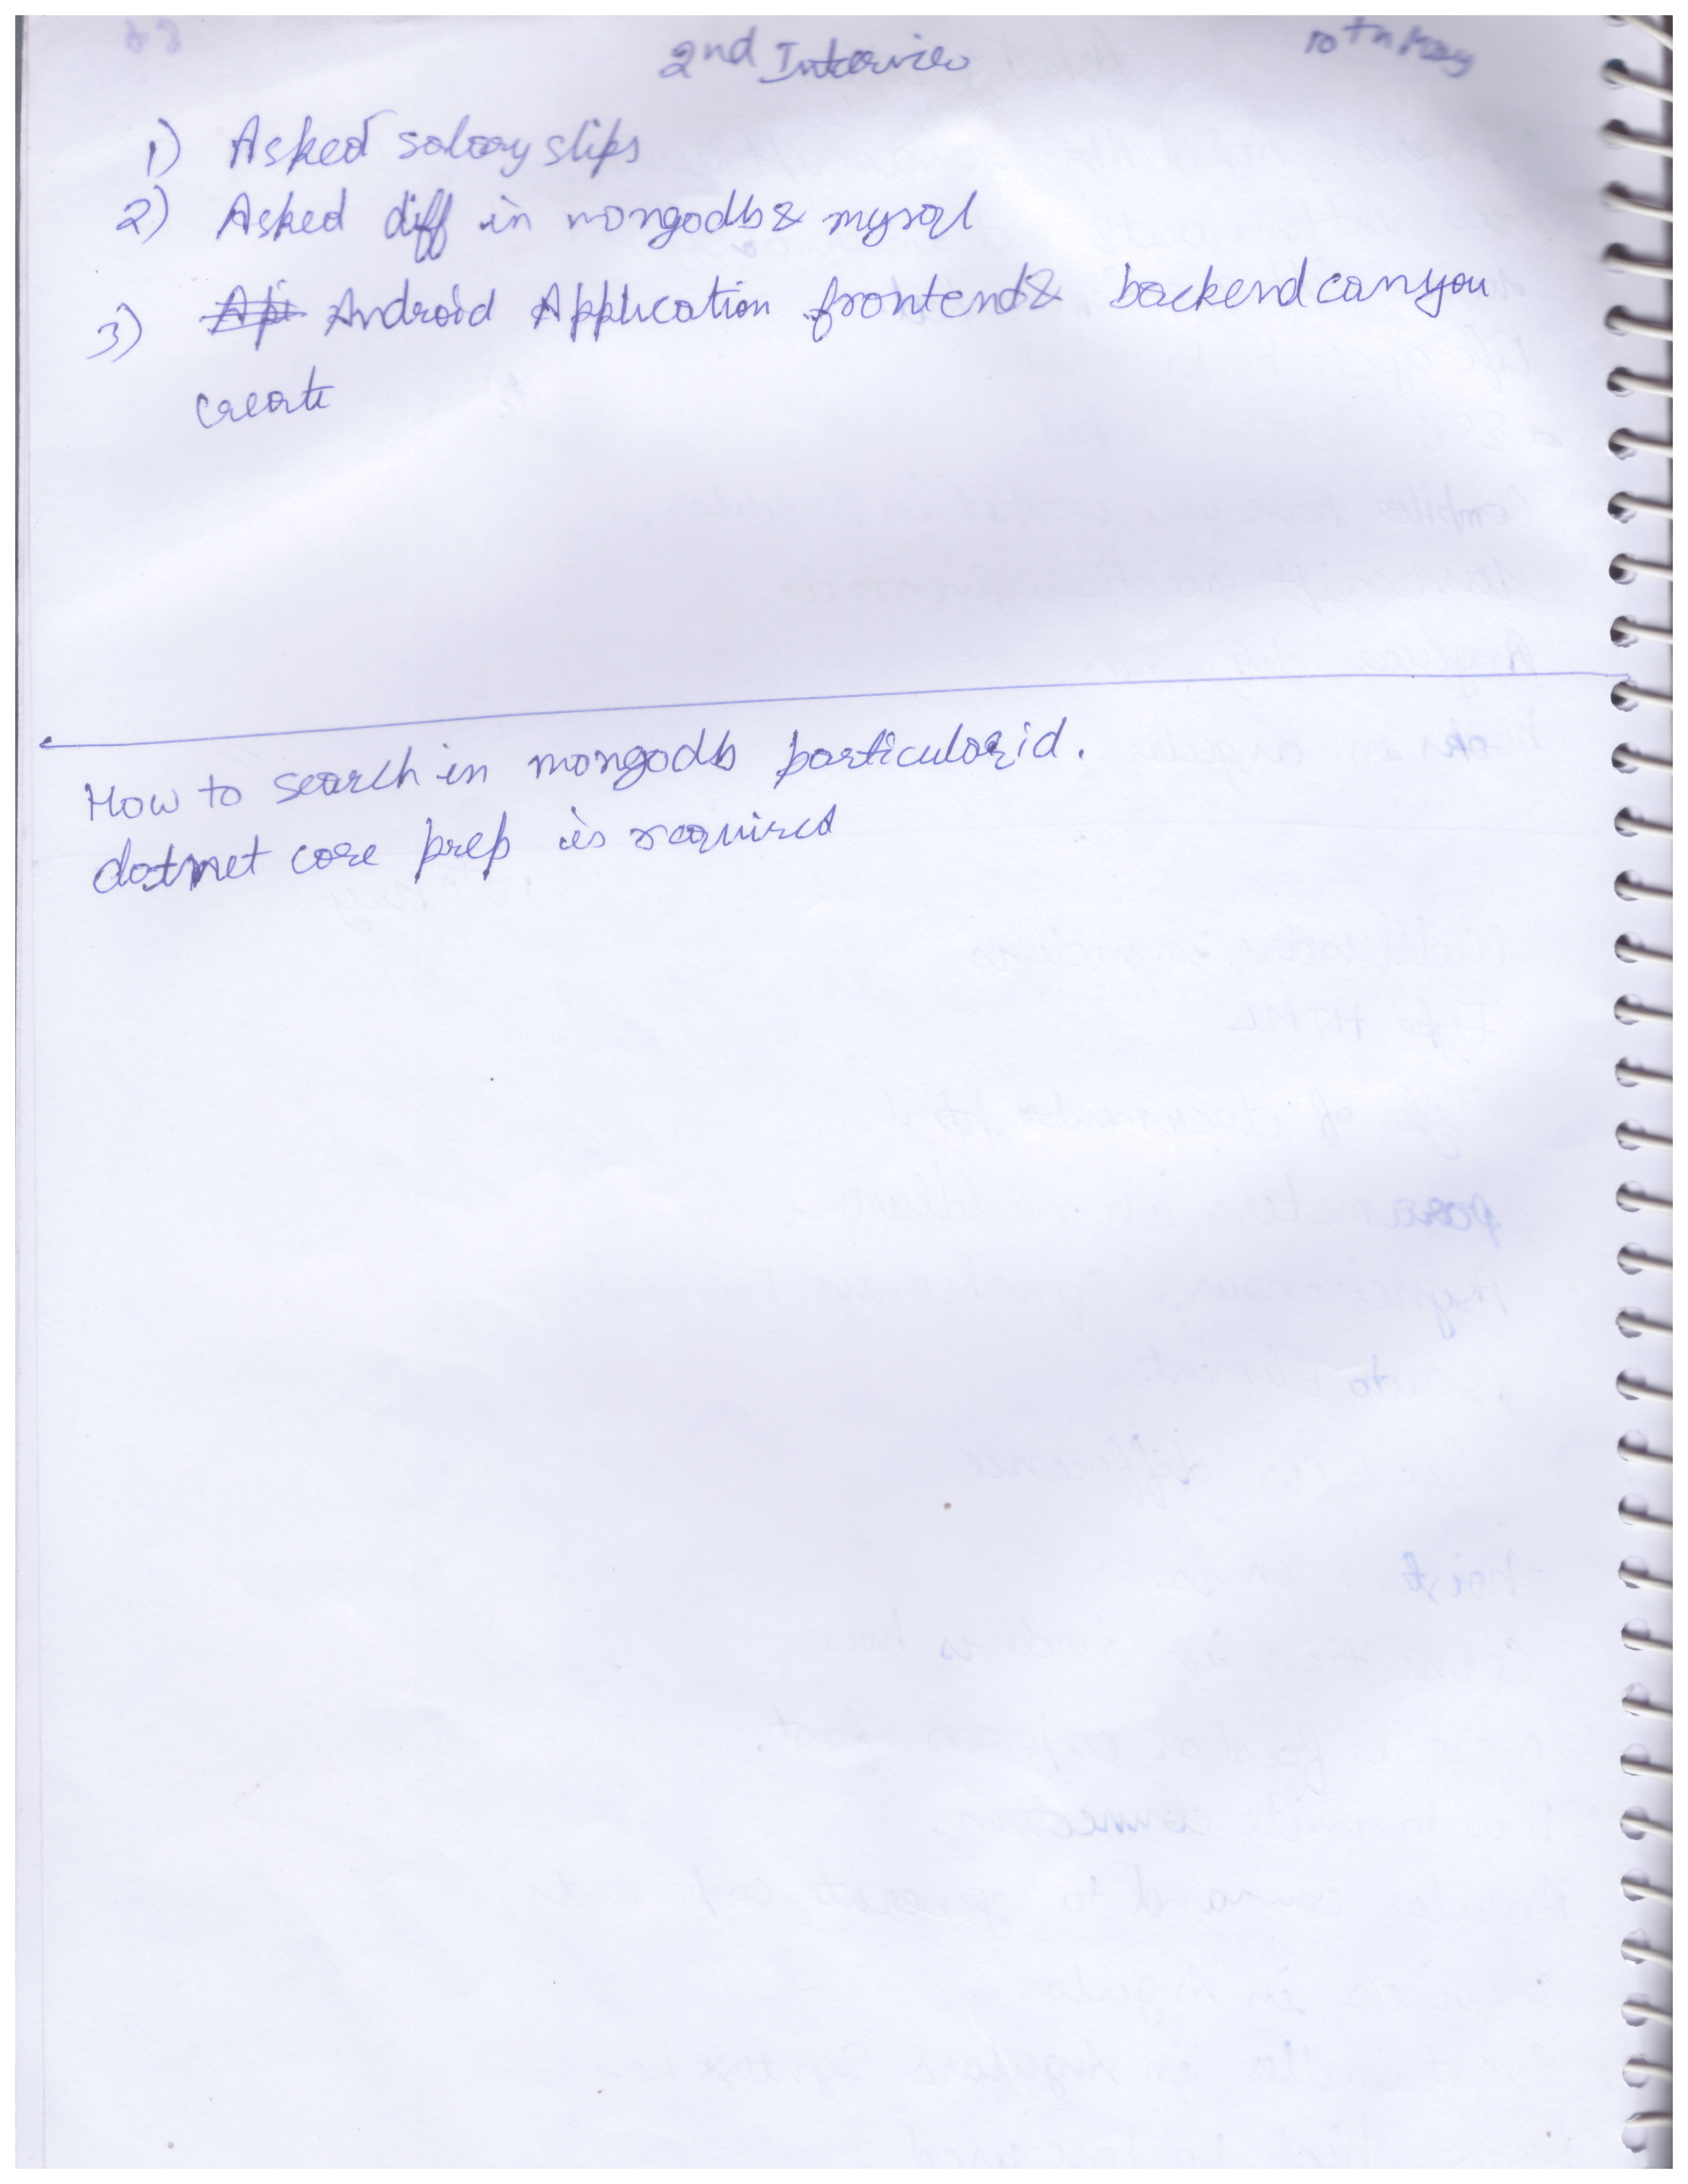 2nd Interview
10th May
1) Asked salary slips
2) Asked diff in mongodb & mysql
3) Api Android Application frontend & backend can you
create
How to search in mongodb particular id.
dotnet core prep is required